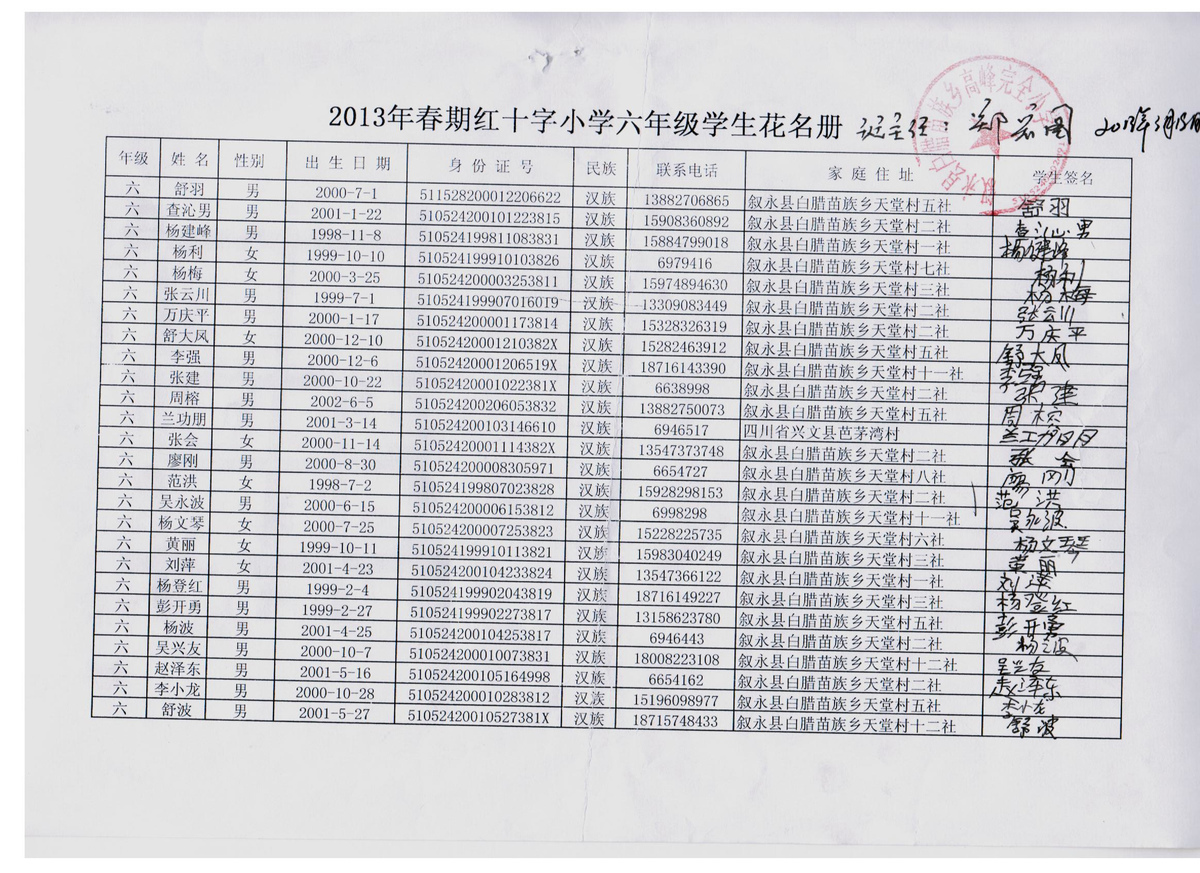 2013年春期红十字小学六年级学生花名册 班主任：
年级 姓名 性别 出生日期 身份证号 民族 联系电话 家庭住址 学生签名
六 舒羽 男 2000-7-1 511528200012206622 汉族 13882706865 叙永县白腊苗族乡天堂村五社 舒羽
六 查沁男 男 2001-1-22 510524200101223815 汉族 15908360892 叙永县白腊苗族乡天堂村二社 查沁男
六 杨建峰 男 1998-11-8 510524199811083831 汉族 15884799018 叙永县白腊苗族乡天堂村一社 杨建峰
六 杨利 女 1999-10-10 510524199910103826 汉族 6979416 叙永县白腊苗族乡天堂村七社 杨利
六 杨梅 女 2000-3-25 510524200003253811 汉族 15974894630 叙永县白腊苗族乡天堂村三社 杨梅
六 张云川 男 1999-7-1 5105241999070160I9 汉族 13309083449 叙永县白腊苗族乡天堂村二社 张云川
六 万庆平 男 2000-1-17 510524200001173814 汉族 15328326319 叙永县白腊苗族乡天堂村二社 万庆平
六 舒大凤 女 2000-12-10 51052420001210382X 汉族 15282463912 叙永县白腊苗族乡天堂村五社 舒大凤
六 李强 男 2000-12-6 51052420001206519X 汉族 18716143390 叙永县白腊苗族乡天堂村十一社 李强
六 张建 男 2000-10-22 51052420001022381X 汉族 6638998 叙永县白腊苗族乡天堂村二社 张建
六 周榕 男 2002-6-5 510524200206053832 汉族 13882750073 叙永县白腊苗族乡天堂村五社 周榕
六 兰功朋 男 2001-3-14 510524200103146610 汉族 6946517 四川省兴文县芭茅湾村 兰功朋
六 张会 女 2000-11-14 51052420001114382X 汉族 13547373748 叙永县白腊苗族乡天堂村二社 张会
六 廖刚 男 2000-8-30 510524200008305971 汉族 6654727 叙永县白腊苗族乡天堂村八社 廖刚
六 范洪 女 1998-7-2 510524199807023828 汉族 15928298153 叙永县白腊苗族乡天堂村二社 范洪
六 吴永波 男 2000-6-15 510524200006153812 汉族 6998298 叙永县白腊苗族乡天堂村十一社 吴永波
六 杨文琴 女 2000-7-25 510524200007253823 汉族 15228225735 叙永县白腊苗族乡天堂村六社 杨文琴
六 黄丽 女 1999-10-11 510524199910113821 汉族 15983040249 叙永县白腊苗族乡天堂村三社 黄丽
六 刘萍 女 2001-4-23 510524200104233824 汉族 13547366122 叙永县白腊苗族乡天堂村一社 刘萍
六 杨登红 男 1999-2-4 510524199902043819 汉族 18716149227 叙永县白腊苗族乡天堂村三社 杨登红
六 彭开勇 男 1999-2-27 510524199902273817 汉族 13158623780 叙永县白腊苗族乡天堂村五社 彭开勇
六 杨波 男 2001-4-25 510524200104253817 汉族 6946443 叙永县白腊苗族乡天堂村二社 杨波
六 吴兴友 男 2000-10-7 510524200010073831 汉族 18008223108 叙永县白腊苗族乡天堂村十二社 吴兴友
六 赵泽东 男 2001-5-16 510524200105164998 汉族 6654162 叙永县白腊苗族乡天堂村二社 赵泽东
六 李小龙 男 2000-10-28 510524200010283812 汉族 15196098977 叙永县白腊苗族乡天堂村五社 李小龙
六 舒波 男 2001-5-27 51052420010527381X 汉族 18715748433 叙永县白腊苗族乡天堂村十二社 舒波